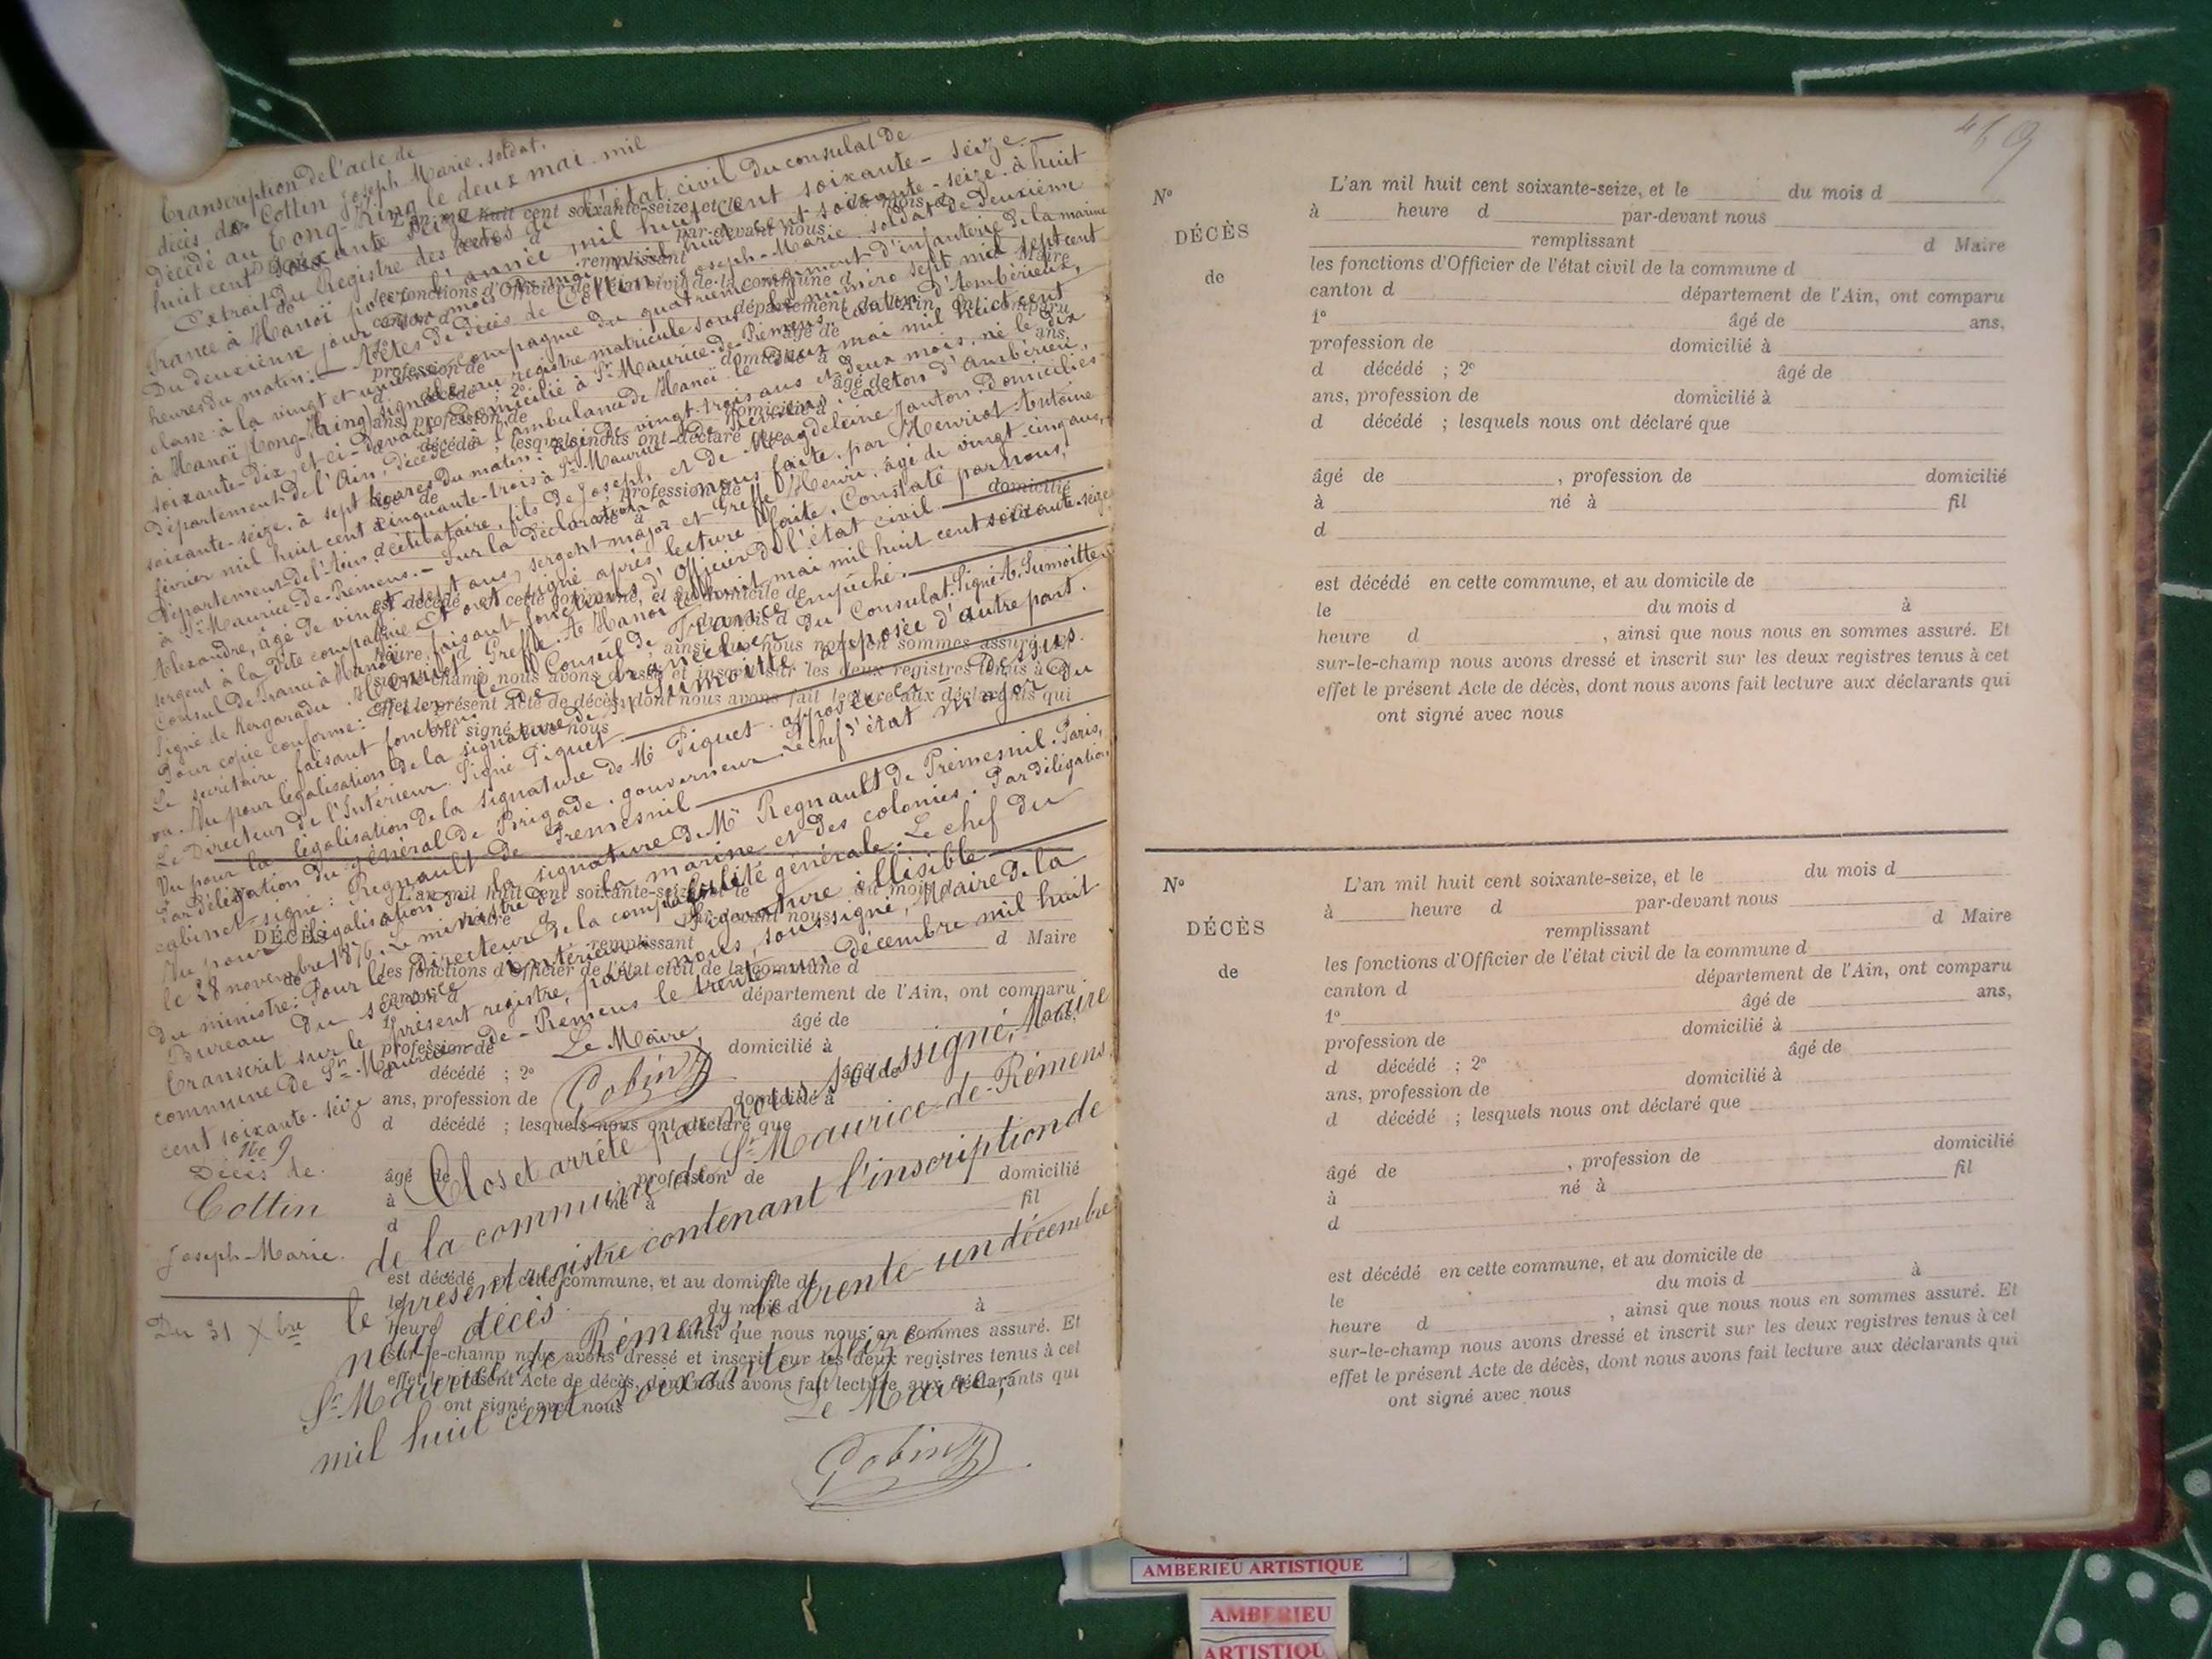 Transcription de l'acte de
décès de Cottin Joseph Marie, soldat,
décédé au Tong-King le deux mai mil
huit cent soixante seize
Extrait du Registre des actes de l'état civil du consulat de
France à Hanoï pour l'année mil huit cent soixante-seize.
Du deuxième jour du mois de mai mil huit cent soixante-seize à huit
heures du matin. — Actes de décès de Cottin, Joseph-Marie, soldat de deuxième
classe à la vingt et unième compagnie du quatrième régiment d'infanterie de la marine
à Hanoï (Tong-King) signalé au registre matricule sous le numéro sept mil sept cent
soixante-dix, et ci-devant domicilié à St Maurice-de-Rémens, canton d'Ambérieux,
Département de l'Ain, décédé à l'ambulance de Hanoï le deux mai mil huit cent
soixante-seize, à sept heures du matin, âgé de vingt-trois ans et deux mois, né le dix
février mil huit cent cinquante-trois à St Maurice de Rémens, canton d'Ambérieu,
Département de l'Ain, célibataire, fils de Joseph et de Magdeleine Janton, domiciliés
à St Maurice-de-Rémens. — Sur la déclaration à nous faite par Henriot Antoine
Alexandre, âgé de vingt-sept ans, sergent major et Greffe Henri, âgé de vingt-cinq ans,
sergent à la dite compagnie Et ont signé après lecture faite. Constaté par nous,
Consul de France à Hanoï faisant fonctions d'Officier de l'état civil
Signé de Kergaradec. Henriot, Greffe. A Hanoï le huit mai mil huit cent soixante-seize
Pour copie conforme: Le Conseil de France empêché.
Le secrétaire faisant fonction de chancelier du Consulat. Signé A. Lumoitte.
vu. Vu pour légalisation de la signature de Mr Lumoitte, apposée d'autre part.
Le Directeur de l'Intérieur. Signé Piquet
Vu pour la légalisation de la signature de Mr Piquet apposée ci-dessus.
Par délégation du général de Brigade, gouverneur Le chef d'état major du
cabinet signé: Regnault de Premesnil
Vu pour légalisation de la signature de Mr Regnault de Prémesnil. Paris,
le 28 novembre 1876. Le ministre de la marine et des colonies. Par délégation
du ministre: Pour le Directeur de la comptabilité générale. Le chef du
Bureau du service intérieur Signature illisible
Transcrit sur le présent registre, par nous, soussigné, Maire de la
commune de St Maurice-de-Rémens le trente-un décembre mil huit
cent soixante-seize
Le Maire,
Gobin
No 9
Décès de
Cottin
Joseph-Marie.
Du 31 Xbre
Clos et arrêté par nous soussigné, Maire
de la commune de St Maurice-de-Rémens
le présent registre contenant l'inscription de
neuf décès.
St Maurice de Rémens, le trente-un décembre
mil huit cent soixante seize
Le Maire,
Gobin
DÉCÈS
de
L'an mil huit cent soixante-seize, et le du mois d
à heure d par-devant nous
remplissant d Maire
les fonctions d'Officier de l'état civil de la commune d
canton d département de l'Ain, ont comparu
1° âgé de
profession de domicilié à
d décédé ; 2° âgé de
ans, profession de domicilié à
d décédé ; lesquels nous ont déclaré que
âgé de , profession de domicilié
à né à fil
d
est décédé en cette commune, et au domicile de
le du mois d à
heure d , ainsi que nous nous en sommes assuré. Et
sur-le-champ nous avons dressé et inscrit sur les deux registres tenus à cet
effet le présent Acte de décès, dont nous avons fait lecture aux déclarants qui
ont signé avec nous
469
N°
DÉCÈS
de
L'an mil huit cent soixante-seize, et le du mois d
à heure d par-devant nous
remplissant d Maire
les fonctions d'Officier de l'état civil de la commune d
canton d département de l'Ain, ont comparu
1° âgé de ans,
profession de domicilié à
d décédé ; 2° âgé de
ans, profession de domicilié à
d décédé ; lesquels nous ont déclaré que
âgé de , profession de domicilié
à né à fil
d
est décédé en cette commune, et au domicile de
le du mois d à
heure d , ainsi que nous nous en sommes assuré. Et
sur-le-champ nous avons dressé et inscrit sur les deux registres tenus à cet
effet le présent Acte de décès, dont nous avons fait lecture aux déclarants qui
ont signé avec nous
N°
DÉCÈS
de
L'an mil huit cent soixante-seize, et le du mois d
à heure d par-devant nous
remplissant d Maire
les fonctions d'Officier de l'état civil de la commune d
canton d département de l'Ain, ont comparu
1° âgé de ans,
profession de domicilié à
d décédé ; 2° âgé de
ans, profession de domicilié à
d décédé ; lesquels nous ont déclaré que
âgé de , profession de domicilié
à né à fil
d
est décédé en cette commune, et au domicile de
le du mois d à
heure d , ainsi que nous nous en sommes assuré. Et
sur-le-champ nous avons dressé et inscrit sur les deux registres tenus à cet
effet le présent Acte de décès, dont nous avons fait lecture aux déclarants qui
ont signé avec nous
AMBERIEU ARTISTIQUE
AMBERIEU
ARTISTIQU